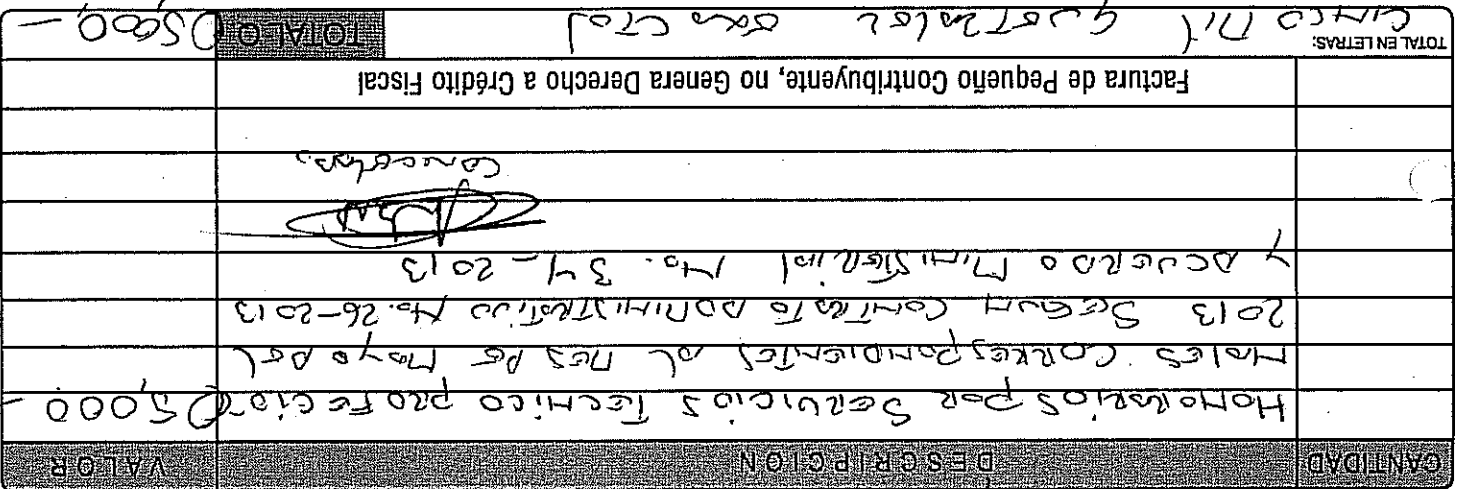 CANTIDAD DESCRIPCION VALOR
HONORARIOS POR SERVICIOS TECNICO PROFECIO- Q5,000-
NALES CORRESPONDIENTES AL MES DE MAYO DEL
2013 SEGUN CONTRATO ADMINISTRATIVO No. 26-2013
Y ACUERDO MINISTERIAL No. 34-2013
Cancelado.
Factura de Pequeño Contribuyente, no Genera Derecho a Crédito Fiscal
TOTAL EN LETRAS: CINCO MIL QUETZALES EXACTOS TOTAL Q Q5,000-